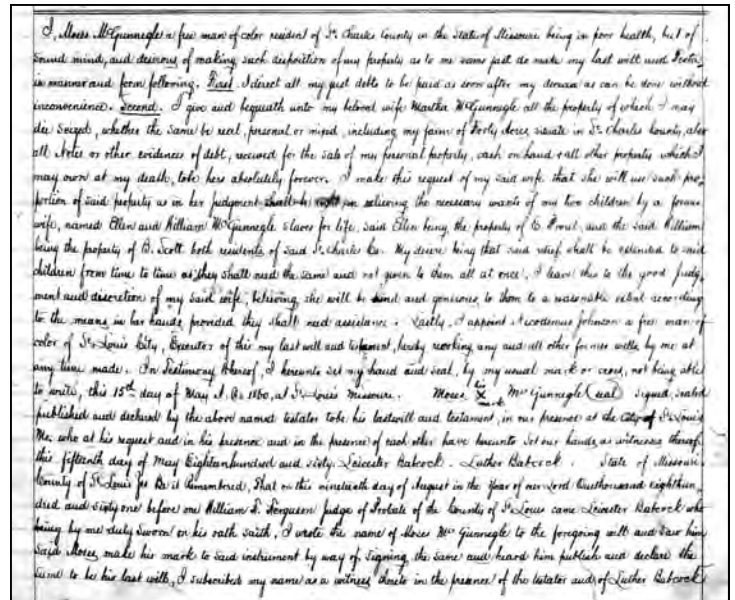 I, Moses McGunnegle a free man of color resident of St Charles County in the State of Missouri being in poor health, but of
sound mind, and desirous of making such disposition of my property as to me seems just do make my last will and Testa
in manner and form following. First. I direct all my just debts to be paid as soon after my demise as can be done without
inconvenience. Second. I give and bequeath unto my beloved wife Martha McGunnegle all the property of which I may
die seized, whether the same be real, personal or mixed, including my farm of Forty Acres, situate in St Charles County, also
all Notes or other evidences of debt, received for the sale of my personal property, cash on hand & all other property which I
may own at my death, to be hers absolutely forever. I make this request of my said wife that she will use such pro-
portion of said property as in her judgment in relieving the necessary wants of my two children by a former
wife, named Ellen and William McGunnegle slaves for life, said Ellen being the property of and the said William
being the property of B. Scott both residents of said St Charles Co. My desire being that said relief shall be extended to said
children from time to time as they shall need the same and not given to them all at once, I leave this to the good judg-
ment and discretion of my said wife, believing she will be kind and generous to them to a reasonable extent according
to the means in her hands, provided they shall need assistance. Lastly, I appoint Nicodemus Johnson a free man of
color of St Louis City, Executor of this my last will and testament, hereby revoking any and all other former wills by me at
any time made. In Testimony Whereof, I hereunto set my hand and seal, by my usual mark or cross, not being able
to write, this 15th day of May A.D. 1860, at St Louis Missouri. Moses his X mark McGunnegle (seal) signed, sealed
published and declared by the above named testator to be his last will and testament, in our presence at the City of St Louis
Mo. who at his request and in his presence and in the presence of each other have hereunto set our hands, as witnesses thereof
this fifteenth day of May Eighteen hundred and sixty. Leicester Babcock. Luther Babcock. State of Missouri
County of St Louis Be it Remembered, That on this nineteenth day of August in the year of our Lord One thousand eight hun-
dred and sixty one before me William F. Ferguson judge of Probate of the County of St Louis came Leicester Babcock who
being by me duly sworn on his oath saith, I wrote the name of Moses McGunnegle to the foregoing will and saw him
said Moses, make his mark to said instrument by way of signing the same and heard him publish and declare the
same to be his last will, I subscribed my name as a witness thereto in the presence of the testator and of Luther Babcock